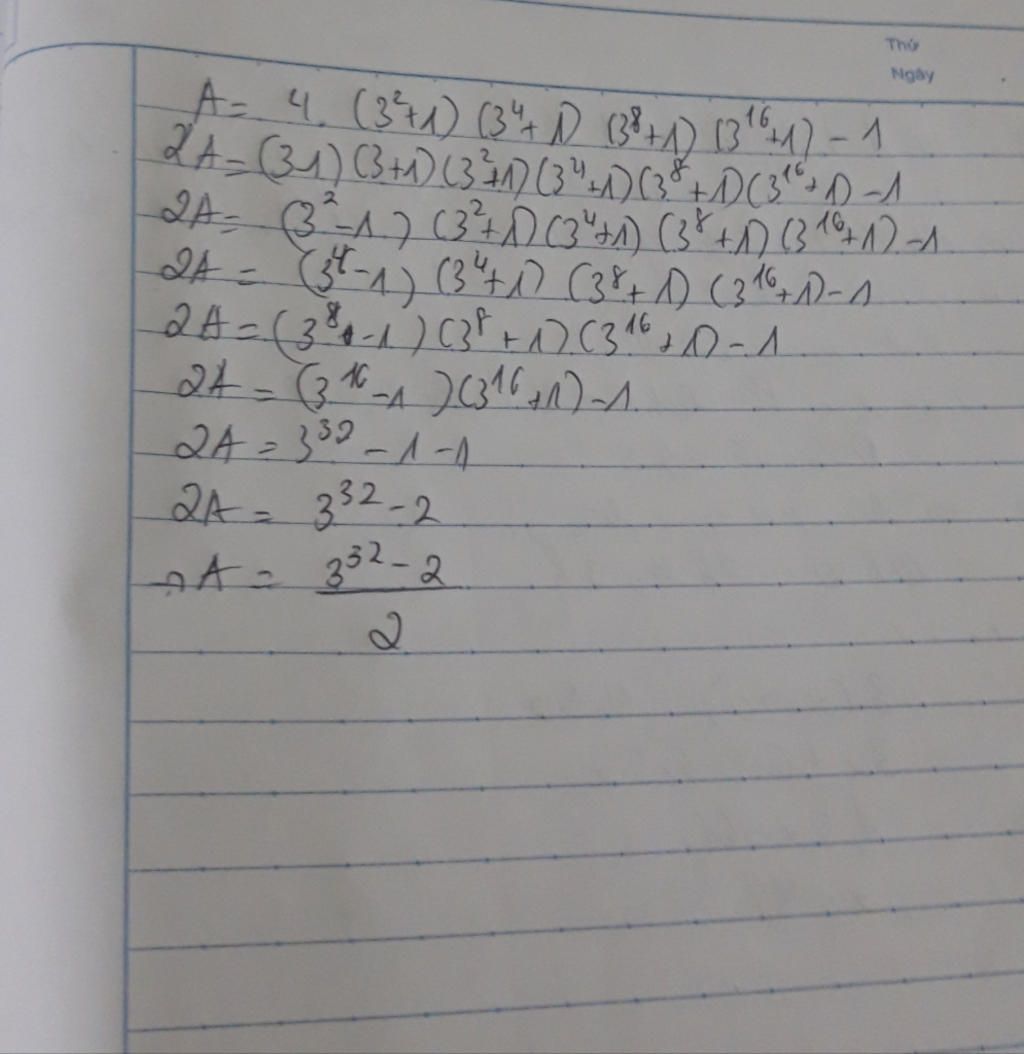 Thứ
Ngày
A = 4. (3²+1) (3⁴+1) (3⁸+1) (3¹⁶+1) - 1
2A = (3-1) (3+1) (3²+1) (3⁴+1) (3⁸+1) (3¹⁶+1) - 1
2A = (3²-1) (3²+1) (3⁴+1) (3⁸+1) (3¹⁶+1) - 1
2A = (3⁴-1) (3⁴+1) (3⁸+1) (3¹⁶+1) - 1
2A = (3⁸-1) (3⁸+1) (3¹⁶+1) - 1
2A = (3¹⁶-1) (3¹⁶+1) - 1
2A = 3³² - 1 - 1
2A = 3³² - 2
A = 3³² - 2
2